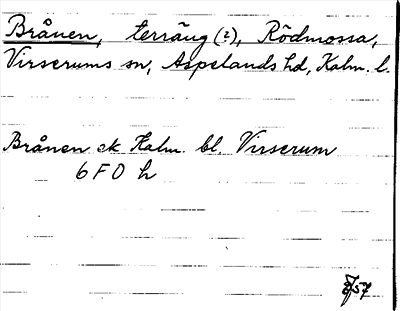 Brånen, terräng (?), Rödmossa,
Virserums sn, Aspelands hd, Kalm. l.
Brånen ek Kalm. bl. Virserum
6 F 0 h
57